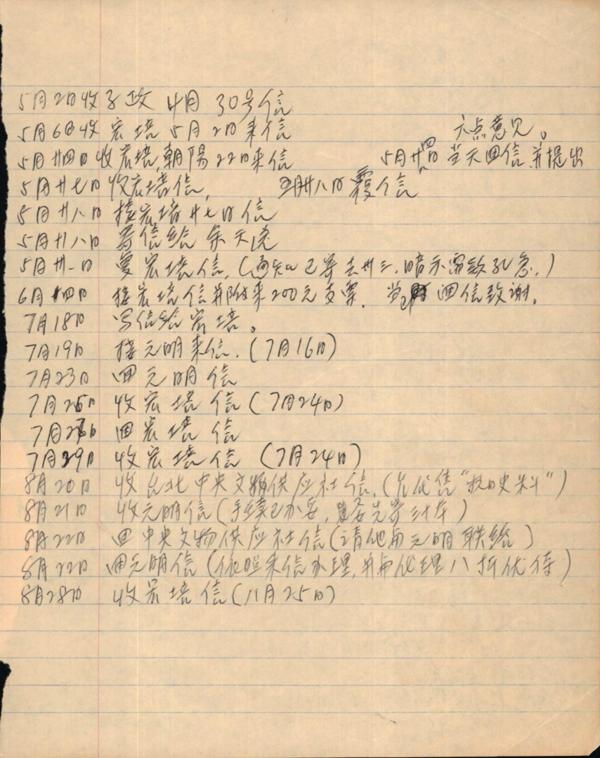 5月2日收子政 4月30号信
5月6日收宏培5月2日来信
六点意见。
5月廿四日收宏培朝陽22日来信 5月廿四日当天回信并提出
5月廿七日 收宏培信, 5月廿八日覆信
5月廿八日 接宏培廿七日信
5月廿八日 寄信给余天
5月卅一日 覆宏培信,(通知已寄去廿三,暗示需款孔急,)
6月14日 接宏培信并附来200元支票. 当 回信致谢。
7月18日 写信给宏培。
7月19日 接元明来信.(7月16日)
7月23日 回元明信
7月26日 收宏培信(7月24日)
7月27日 回宏培信
7月29日 收宏培信(7月24日)
8月20日 收台北中央文物供应社信,(允代售"抗日史料")
8月21日 收元明信(手续已办妥, 委先寄 本)
8月22日 回中央文物供应社信(请他与元明联络)
8月22日 回元明信(依照来信办理,并与他理八折优待)
8月28日 收宏培信(8月25日)